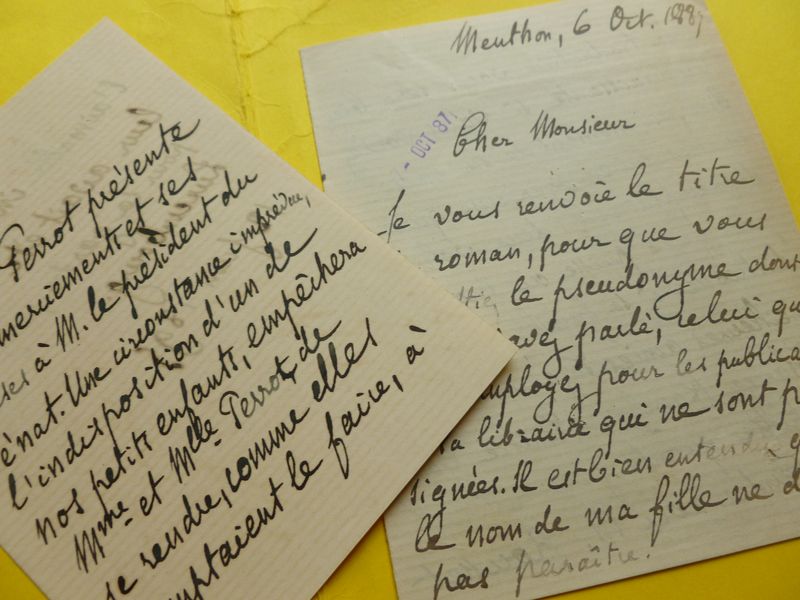 Perrot présente
merciements et ses
ses à M. le président du
énat. Une circonstance imprévue,
l'indisposition d'un de
nos petits enfants, empêchera
Mme et Mlle Perrot, de
se rendre, comme elles
mptaient le faire, à
Menthon, 6 Oct. 188
- OCT 87
Cher Monsieur
Je vous renvoie le titre
roman, pour que vous
le pseudonyme dont
avez parlé, celui qu
mployez pour les publica
la librairie qui ne sont p
signées. Il est bien entendu q
le nom de ma fille ne d
pas paraître.